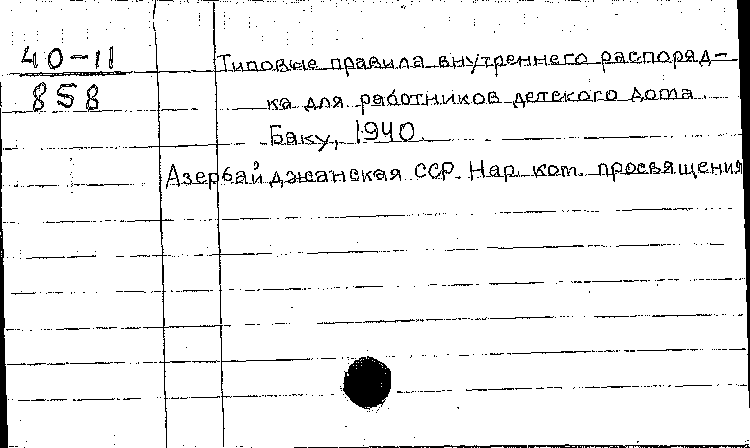 40-11
858
Типовые правила внутреннего распоряд-
ка для работников детского дома.
Баку, 1940.
Азербайджанская ССР. Нар. ком. просвящения